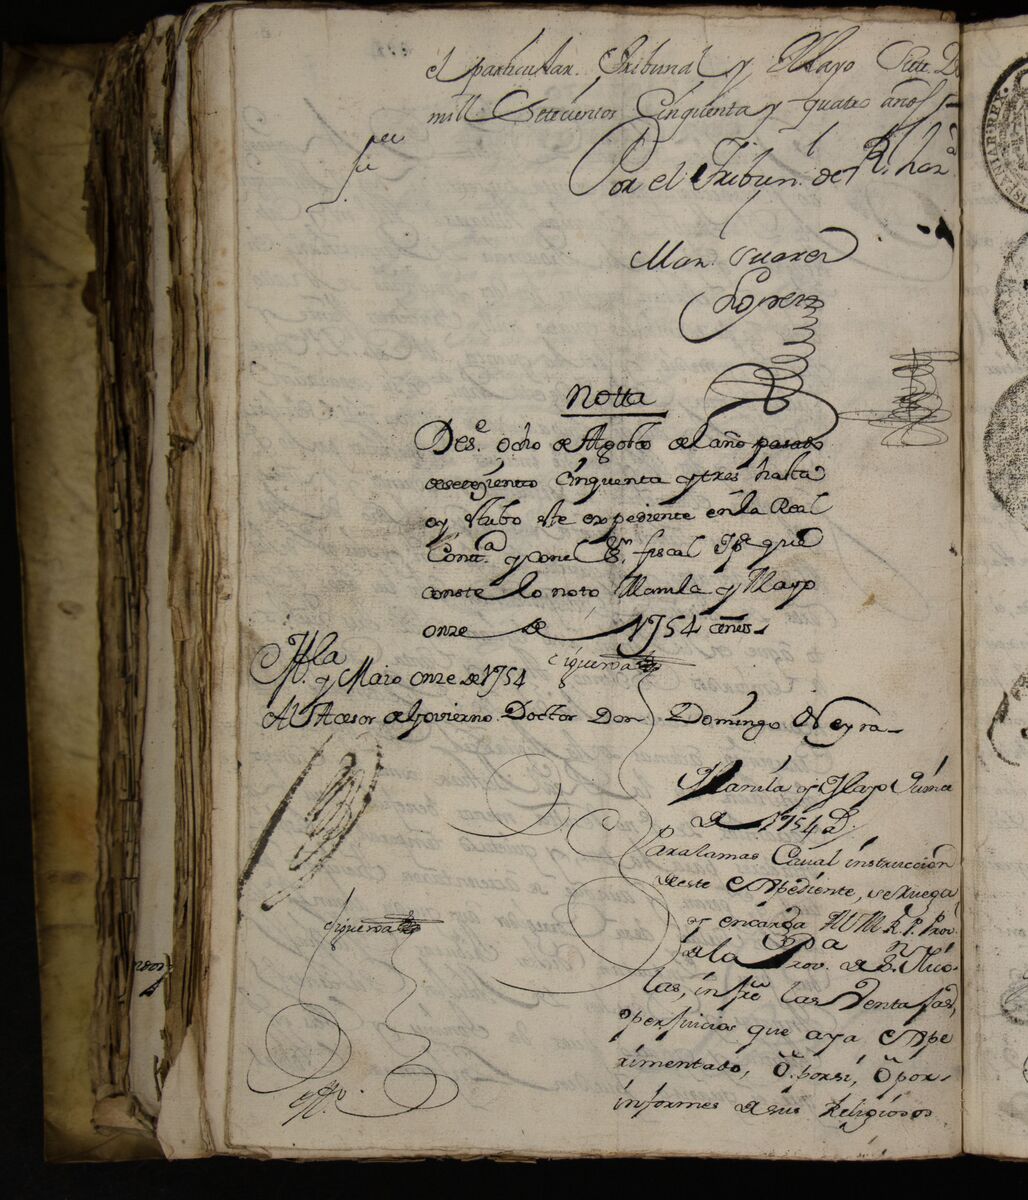 el particular. Tribunal y Mayo Siete De
mill Setecientos Cinquenta y quatro años
Por el Tribun.l de R.l haz.a
Man. Suarez
Lorenz
Notta
Des.e ocho de Agosto del año pasado
de setezientto Cinquenta y tres hasta
oy stubo este expediente en la Real
Contt.a y con el S.r fiscal Y p.a que
conste lo noto Manila y Mayo
onze de 1754 años
Figueroa
M.la y Maio onze de 1754
Al Asesor de Govierno Doctor Don Domingo Neyra
Manila y Mayo
de 1754 a.s
Para la mas Caval instruccion
de este Expediente, se Ruega
y encarga N M R. P. Prov.
de la Prov.a de S.n Nico-
las, infrē las Ventajas,
o perjuicios que aya Expe
rimentado, o por si, o por
informes de sus Religiosos
Figueroa